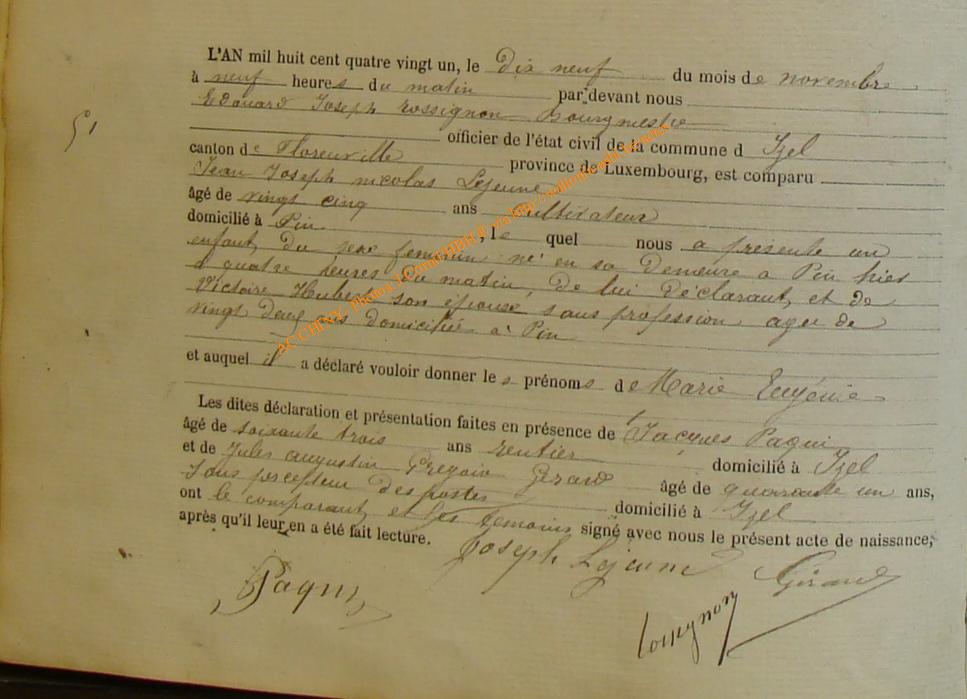 L'AN mil huit cent quatre vingt un, le Dix neuf du mois de novembre
à neuf heures du matin par devant nous
Edouard Joseph Rossignon Bourgmestre
51
officier de l'état civil de la commune d Izel
canton de Florenville province de Luxembourg, est comparu
Jean Joseph nicolas Lejeune
âgé de vingt cinq ans cultivateur
domicilié à Pin , le quel nous a présenté un
enfant du sexe feminin né en sa demeure à Pin hier
à quatre heures du matin, de lui déclarant, et de
Victoire Hubert son épouse sans profession agée de
vingt deux ans domiciliée à Pin
et auquel il a déclaré vouloir donner les prénoms de Marie Eugénie
Les dites déclaration et présentation faites en présence de Jacques Paqui
âgé de soixante trois ans rentier domicilié à Izel
et de Jules augustin Gregoir Gérard âgé de quarante un ans,
Sous percepteur des postes domicilié à Izel
ont le comparant et les témoins signé avec nous le présent acte de naissance,
après qu'il leur en a été fait lecture.
Joseph Lejeune
Paqui
Gérard
Rossignon